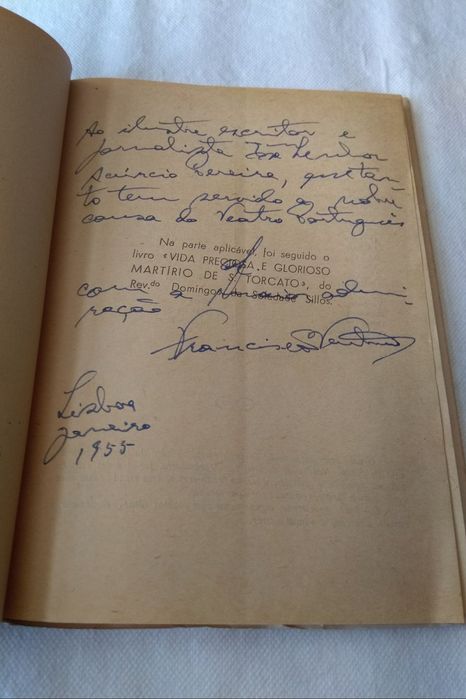 Ao ilustre escritor e
jornalista Ex.mo Senhor
Acúrcio Pereira, que tan-
to tem servido a nobre
causa do Teatro Português
Na parte aplicável, foi seguido o
livro «VIDA PRECIOSA E GLORIOSO
MARTÍRIO DE S. TORCATO», do
Rev.do Domingos da Soledade Sillos.
com a maior admi-
ração
Francisco Ventura
Lisboa
Janeiro
1955